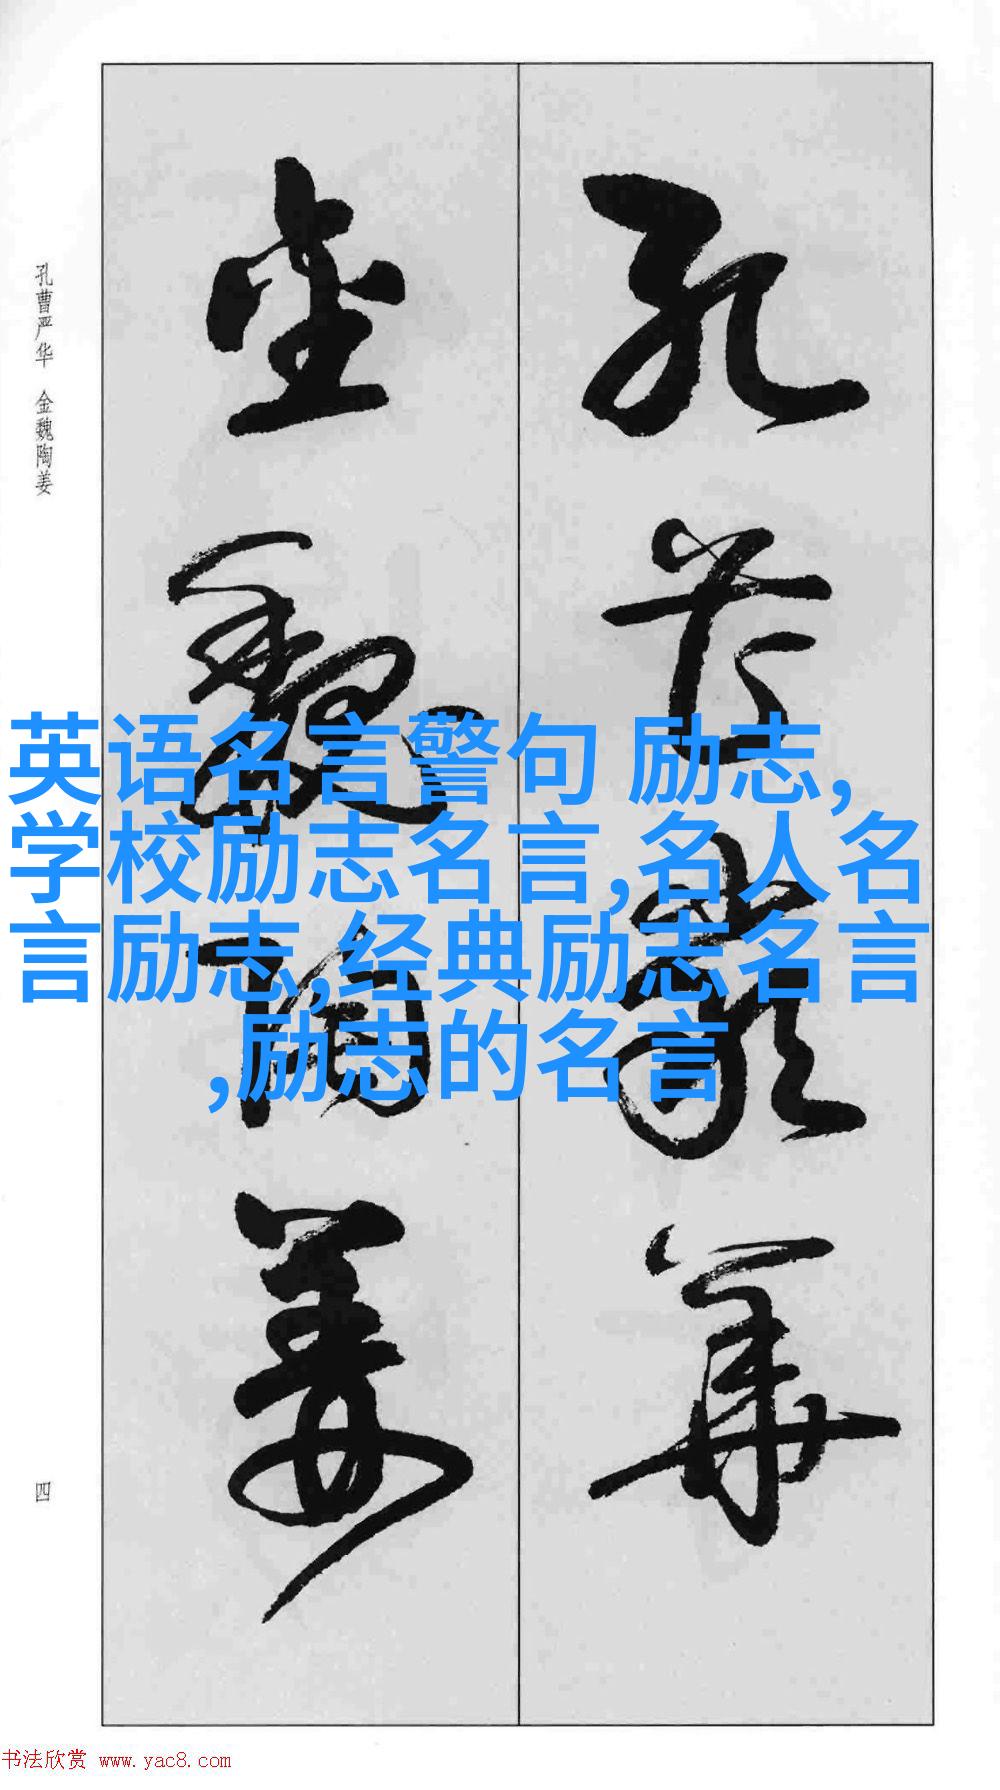 孔曹严华 金魏陶姜
孔曹嚴華
金魏陶姜
英语名言警句 励志,
学校励志名言,名人名
言励志,经典励志名言
,励志的名言
四
书法欣赏 www.yac8.com